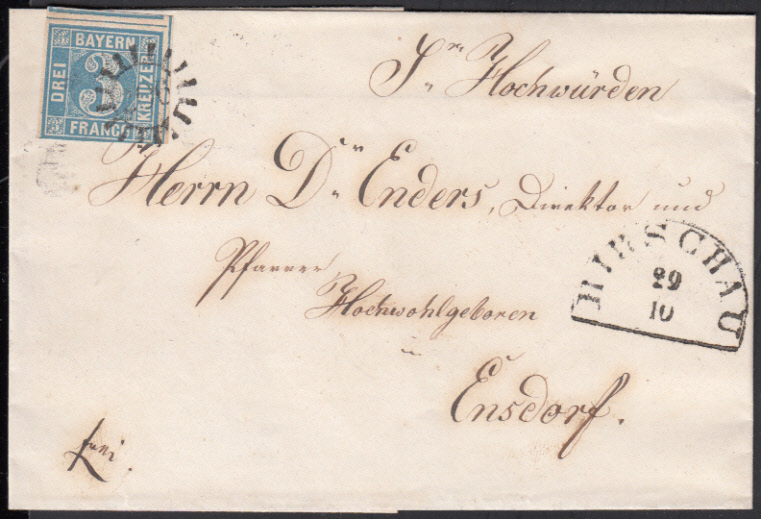 BAYERN
DREI
3
KREUZER
FRANCO
Sr Hochwürden
Herrn Dr Enders, Direktor und
Pfarrer
Hochwohlgeboren
in
Ensdorf.
HIRSCHAU
29
10
frei.